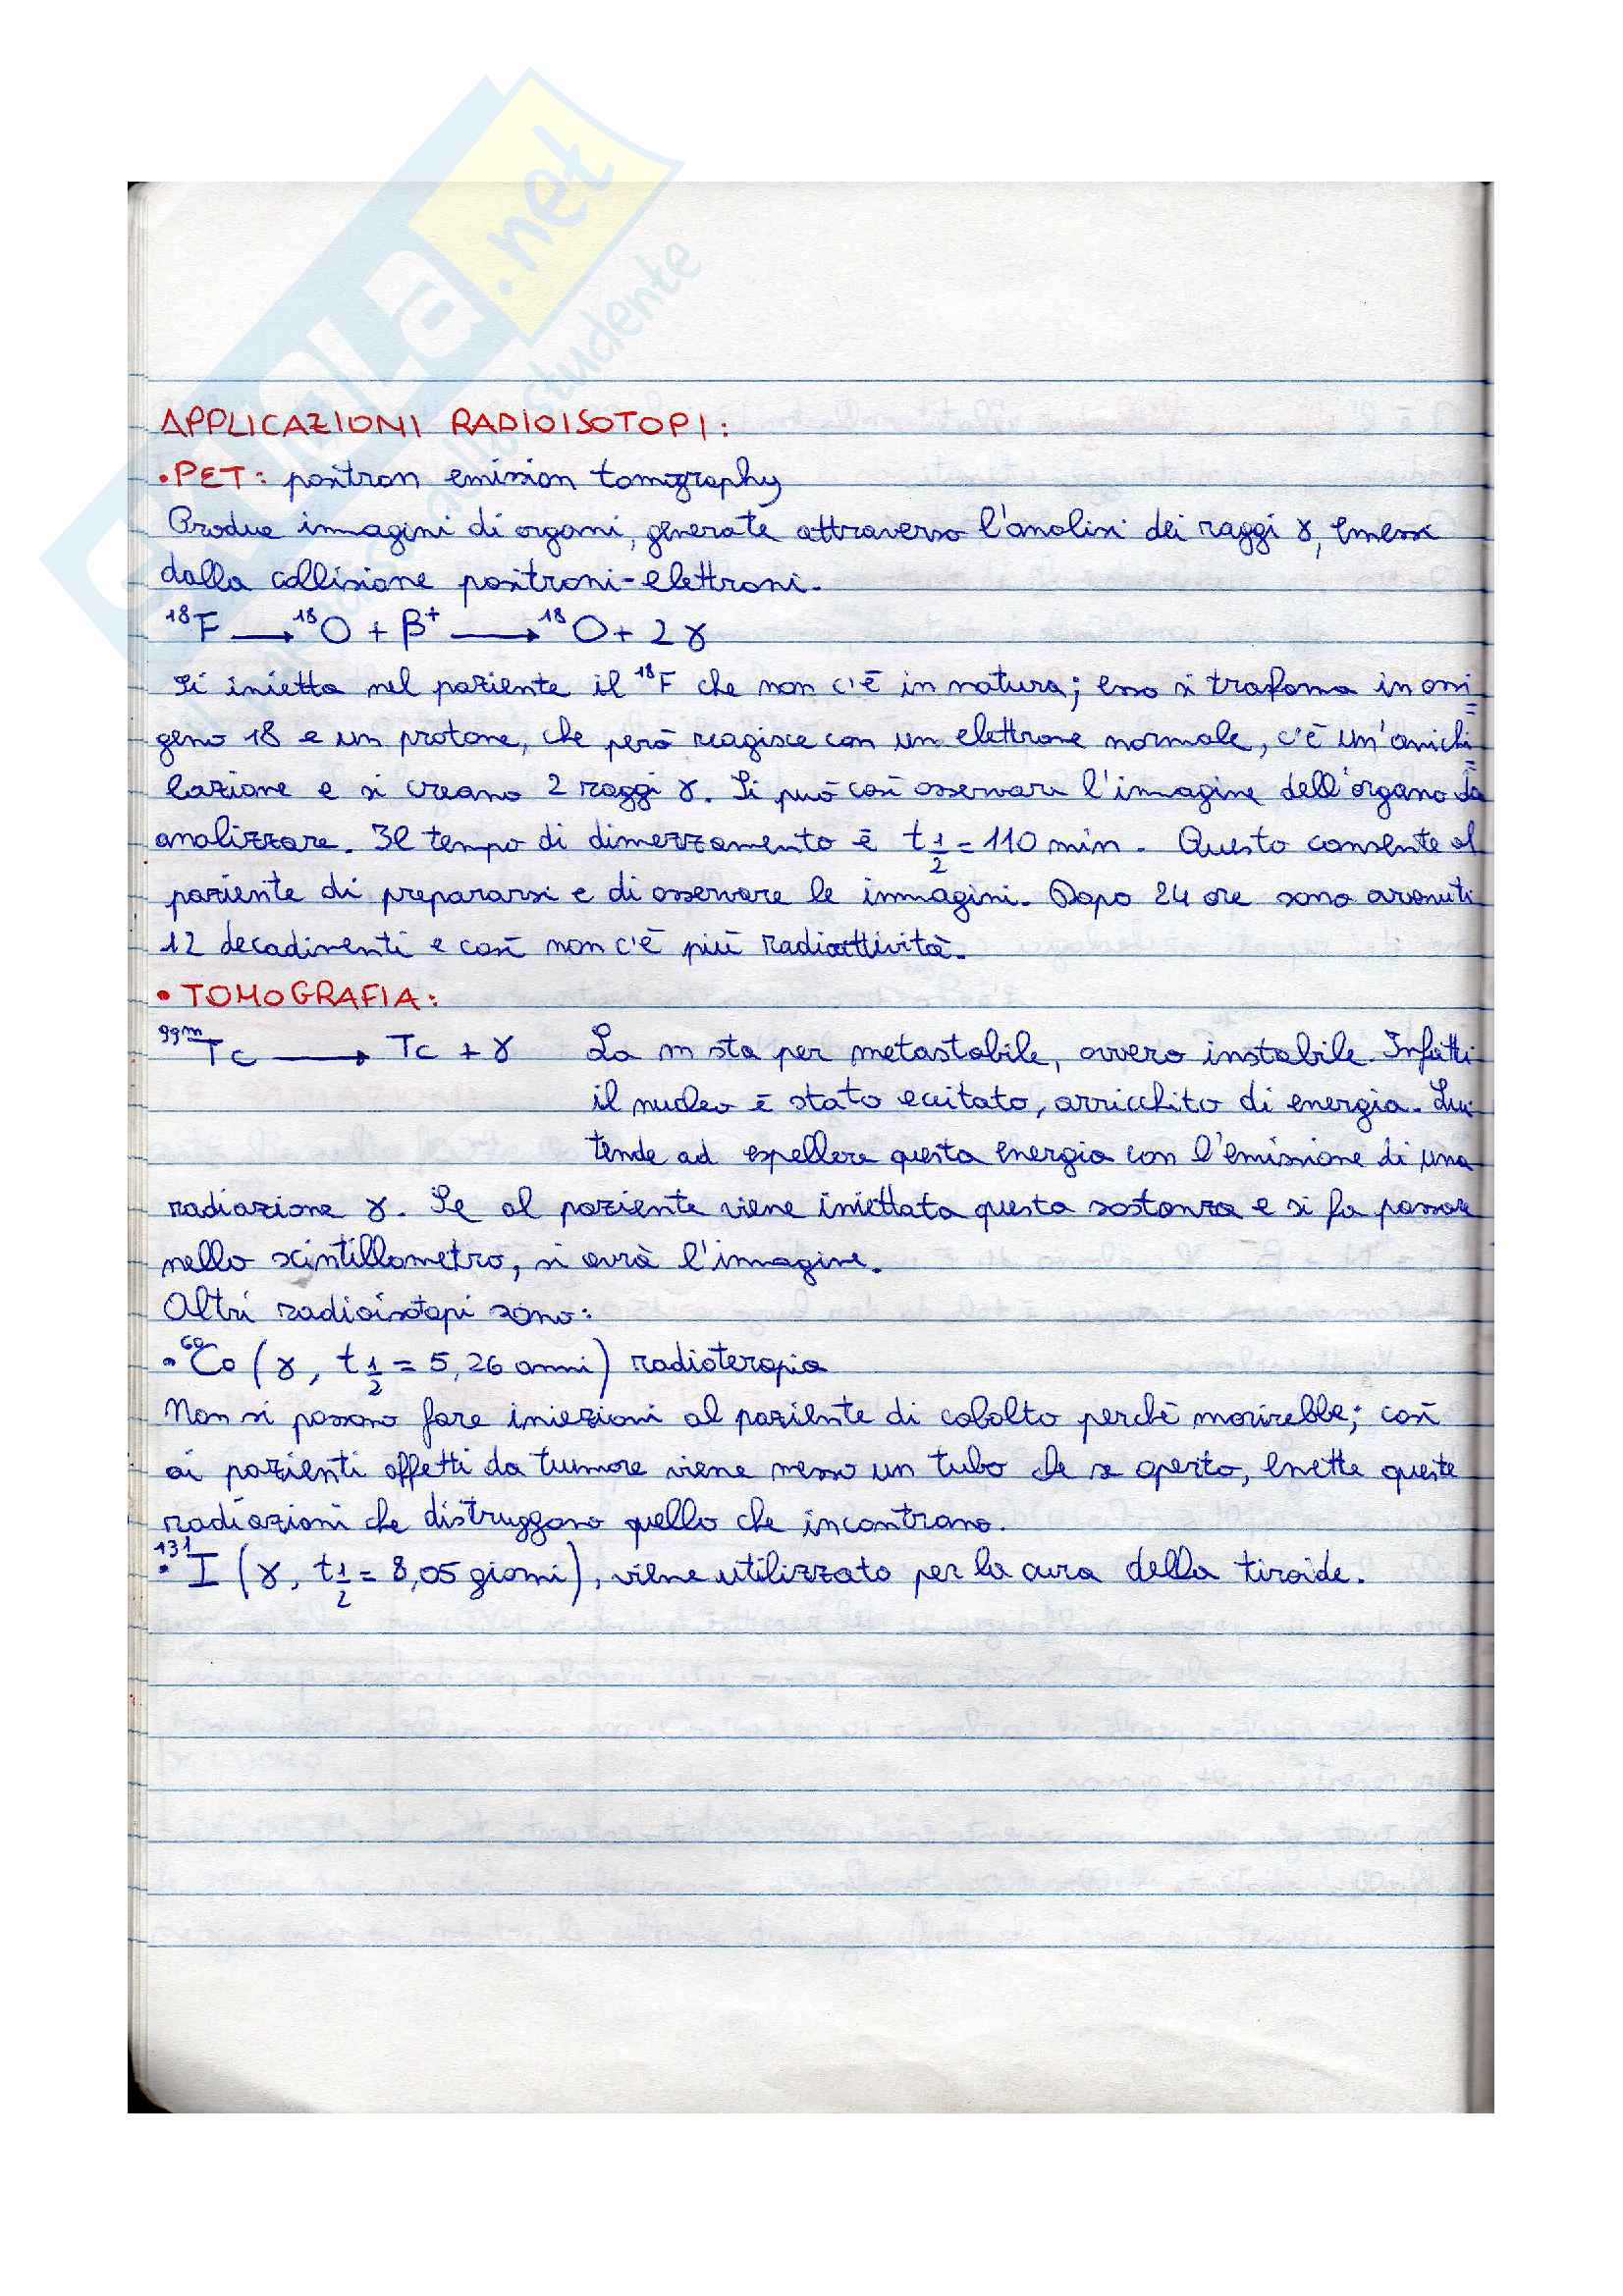 APPLICAZIONI RADIOISOTOPI:
• PET: positron emission tomography
Produce immagini di organi, generate attraverso l'analisi dei raggi γ, emessi
dalla collisione positroni-elettroni.
¹⁸F → ¹⁸O + β⁺ → ¹⁸O + 2γ
Si inietta nel paziente il ¹⁸F che non c'è in natura; esso si trasforma in ossi=
geno 18 e un protone, che però reagisce con un elettrone normale, c'è un'anichi=
lazione e si creano 2 raggi γ. Si può così osservare l'immagine dell'organo da
analizzare. Il tempo di dimezzamento è t 1/2 = 110 min. Questo consente al
paziente di prepararsi e di osservare le immagini. Dopo 24 ore sono avvenuti
12 decadimenti e così non c'è più radioattività.
• TOMOGRAFIA:
⁹⁹ᵐTc → Tc + γ La m sta per metastabile, ovvero instabile. Infatti
il nucleo è stato eccitato, arricchito di energia. Lui
tende ad espellere questa energia con l'emissione di una
radiazione γ. Se al paziente viene iniettata questa sostanza e si fa passare
nello scintillometro, si avrà l'immagine.
Altri radioisotopi sono:
• ⁶⁰Co (γ, t 1/2 = 5,26 anni) radioterapia
Non si possono fare iniezioni al paziente di cobolto perchè morirebbe; così
ai pazienti affetti da tumore viene messo un tubo che se aperto, emette queste
radiazioni che distruggono quello che incontrano.
• ¹³¹I (γ, t 1/2 = 8,05 giorni), viene utilizzato per la cura della tiroide.
.net
studente